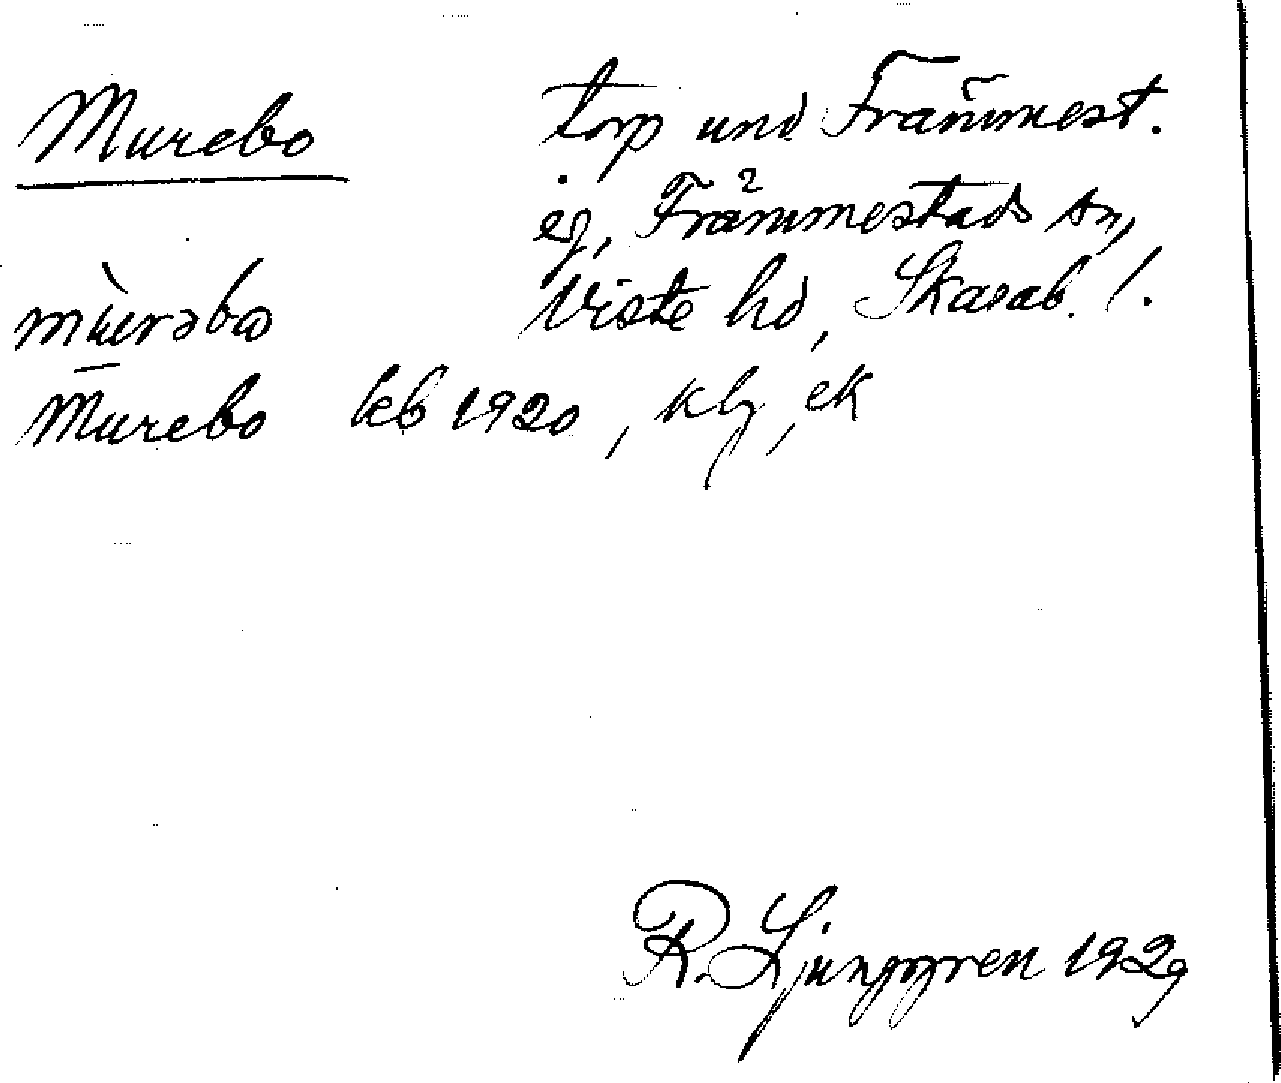 Murebo
torp und Främmest.
eg, Främmestads sn,
mùrəbo
Viste hd, Skarab. l.
Murebo kb 1920, klg, ek
R. Ljunggren 1929